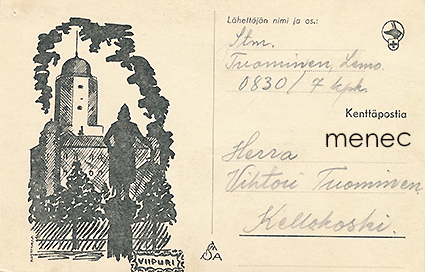 Lähettäjän nimi ja os.:
Stm.
Tuominen, Lemo.
0830/7 kpk.
Kenttäpostia
menec
Herra
Vihtori Tuominen
Kellokoski.
VIIPURI